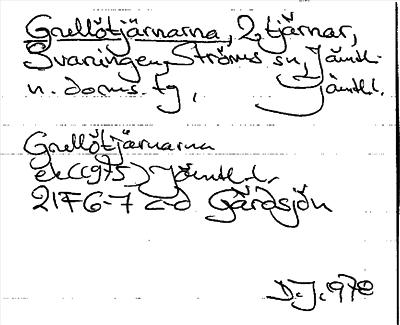 Grellötjärnarna, 2 tjärnar,
Svaningen, Ströms sn, Jämtl.
n. doms. tg, Jämtl. l.
Grellötjärnarna
ek (1975) Jämtl. l.
21F 6-7 c-d Gårdsjön
D.J. 1978